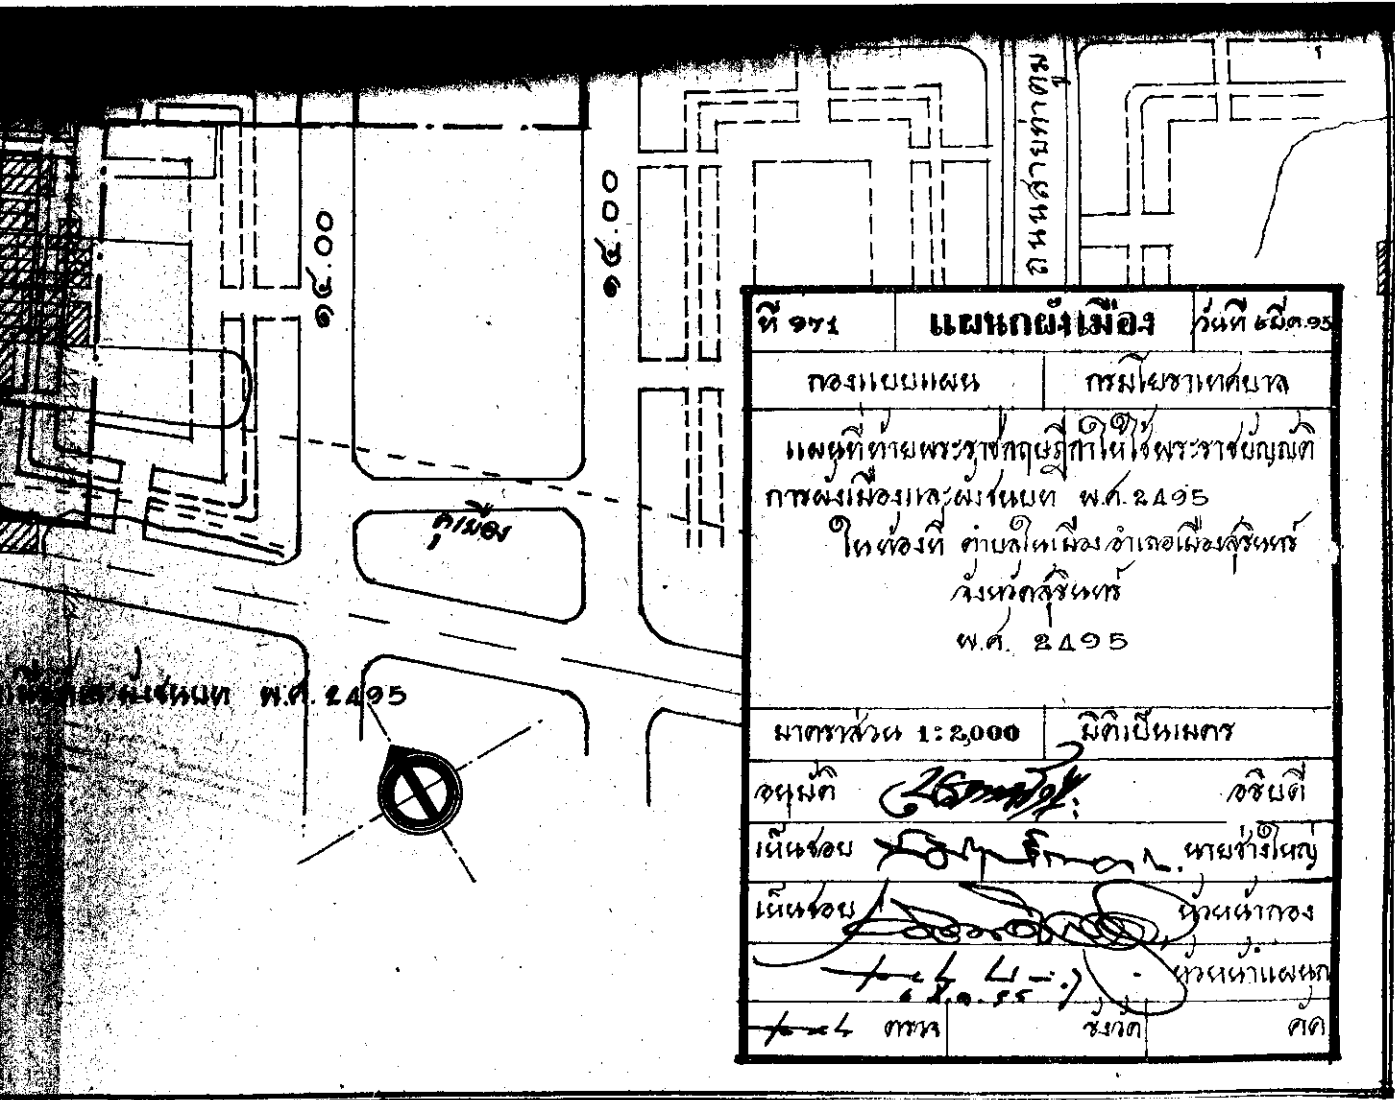 ๑๕.00
๑๕.00
ถนนศาลาเทศบาล
คูเมือง
ผังชนบท พ.ศ. 2495
ที่ ๑71
แผนกผังเมือง
วันที่ ๖ มี.ค. 95
กองแบบแผน
กรมโยธาเทศบาล
แผนที่ท้ายพระราชกฤษฎีกาให้ใช้พระราชบัญญัติ
การผังเมืองและผังชนบท พ.ศ. 2495
ในท้องที่ ตำบลในเมือง อำเภอเมืองสุรินทร์
จังหวัดสุรินทร์
พ.ศ. 2495
มาตราส่วน 1:2,000
มิติเป็นเมตร
อนุมัติ
อธิบดี
เห็นชอบ
นายช่างใหญ่
เห็นชอบ
หัวหน้ากอง
หัวหน้าแผนก
ตรวจ
คัด